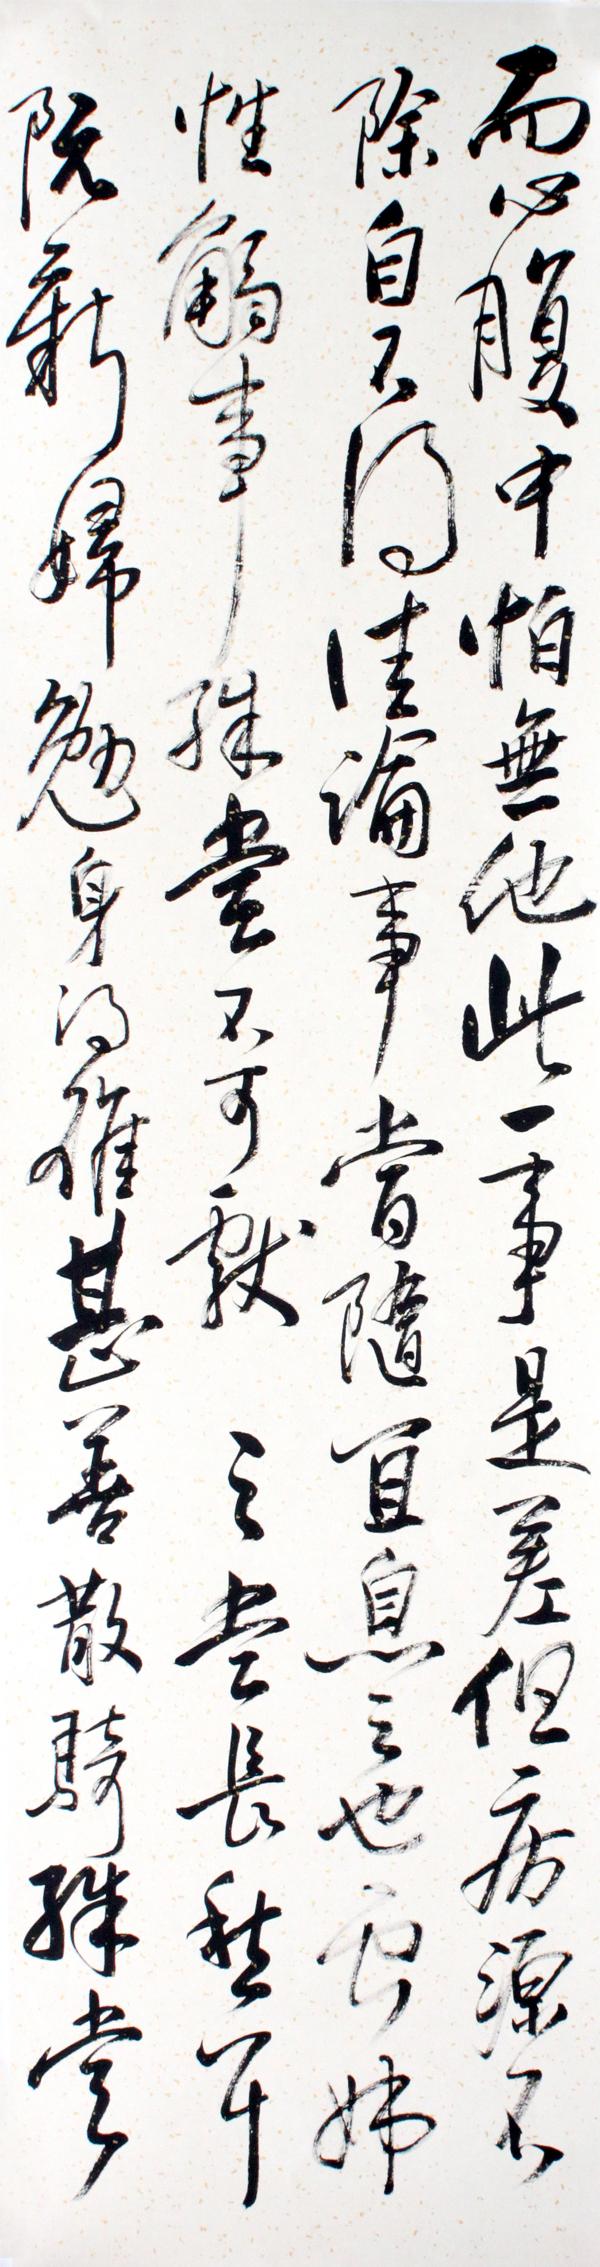 而心腹中怕無他此一事是差但疾源不
除自不得佳論事當隨宜息之也姊
性觸事殊當不可獻之當長愁耳
阮新婦勉身得雄甚善散騎殊當